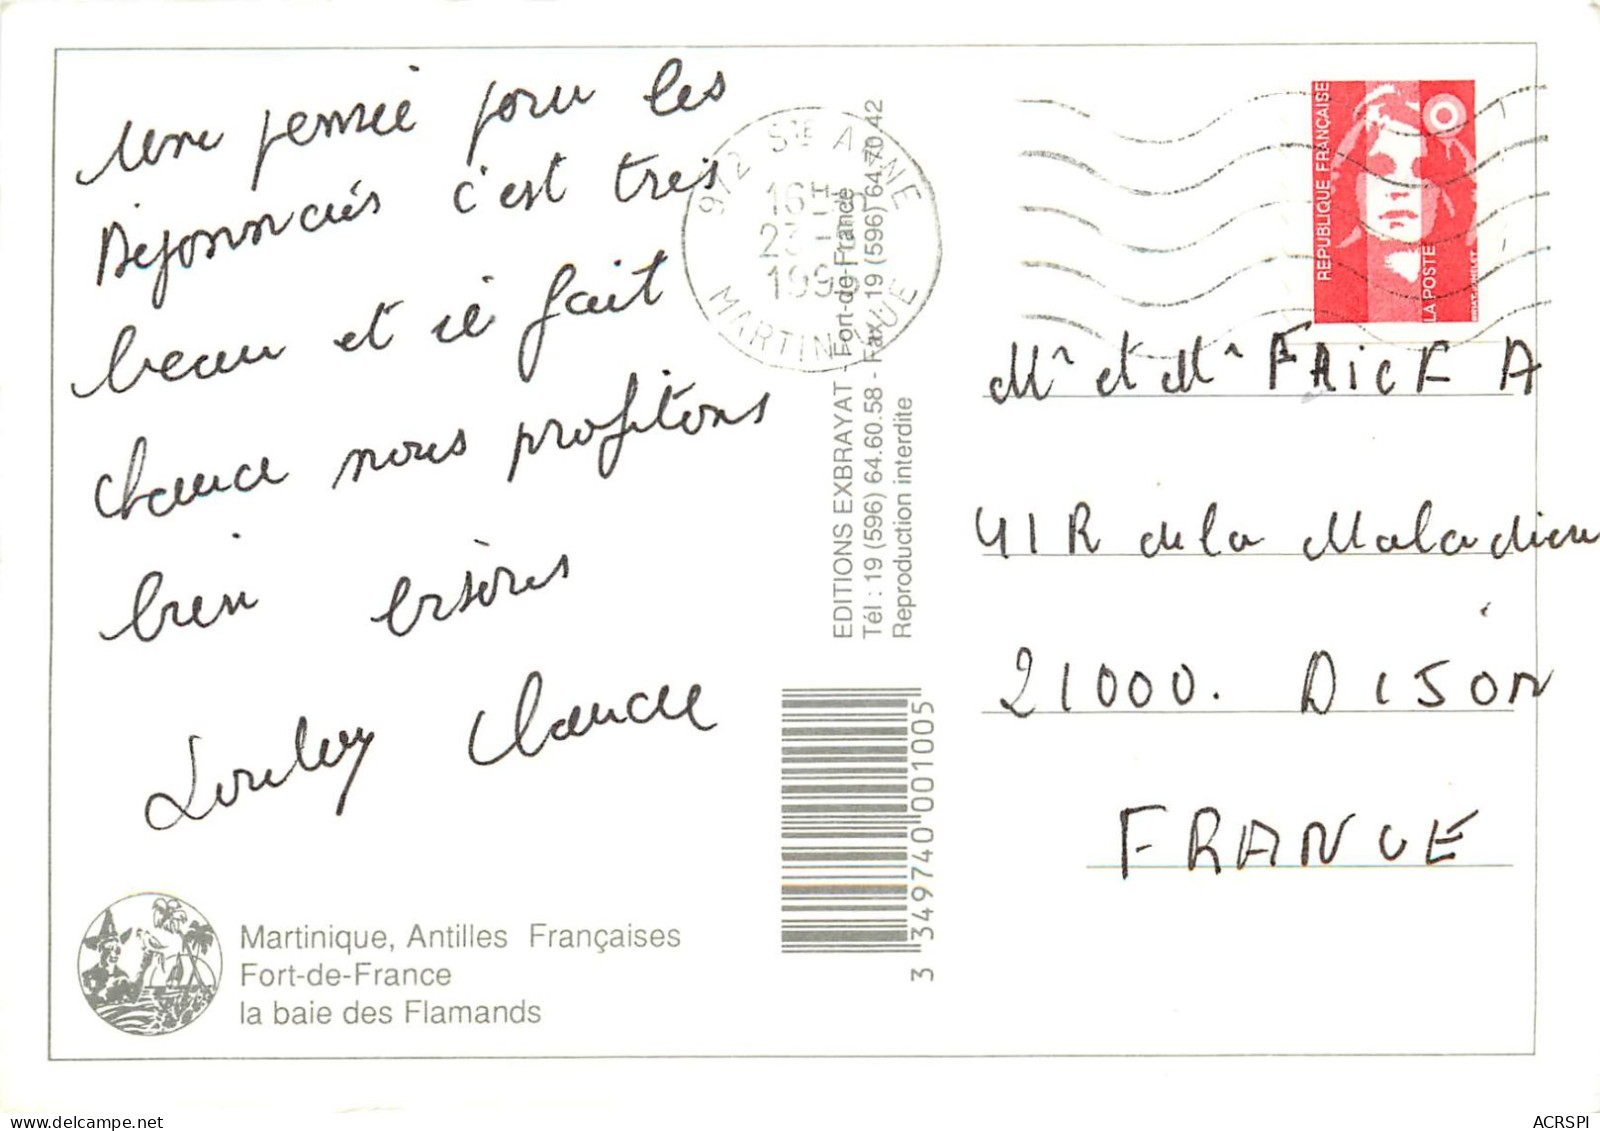 Une pensée pour les
Dijonnais c'est très
beau et il fait
chaud nous profitons
bien bisous
Claude
Martinique, Antilles Françaises
Fort-de-France
la baie des Flamands
972 STE ANNE
16H
MARTINIQUE
EDITIONS EXBRAYAT - Fort-de-France
Tél : 19 (596) 64.60.58 - Fax : 19 (596) 64.70.42
Reproduction interdite
3 349740 001005
REPUBLIQUE FRANÇAISE
LA POSTE
Mr et Mm FAICF A
41 R de la Maladière
21000. DIJON
FRANCE
ACRSPI